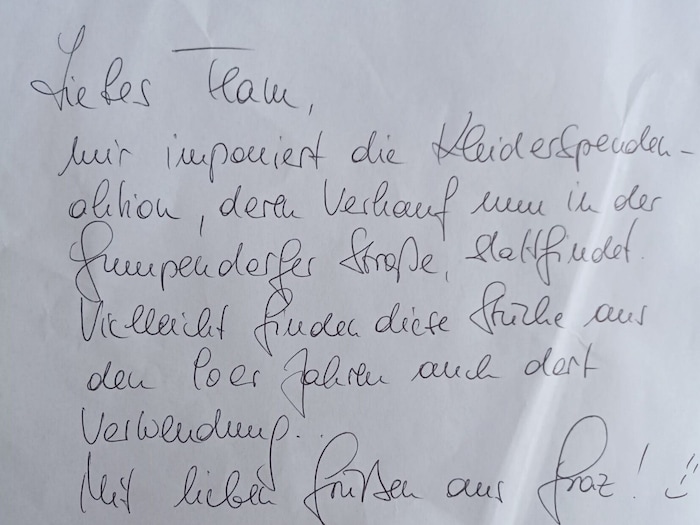 Liebes Team,
mir imponiert die Kleiderspenden-
aktion, deren Verkauf nun in der
Gumpendorfer Straße, stattfindet.
Vielleicht finden diese Stücke aus
den 60er Jahren auch dort
Verwendung.
Mit lieben Grüßen aus Graz! :-)